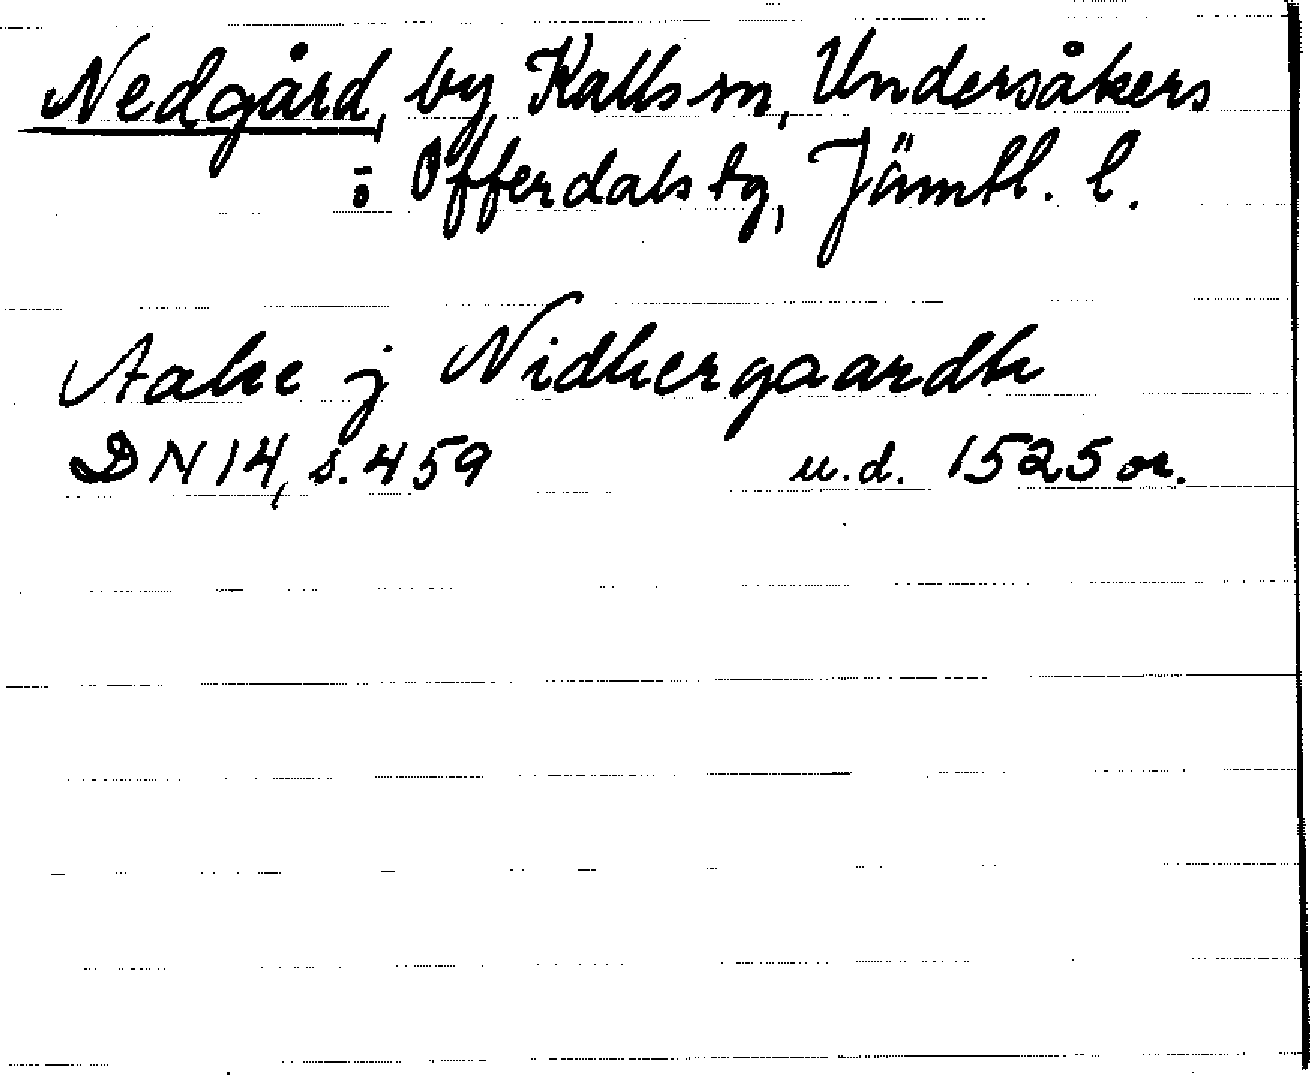 Nedgård, by, Kalls sn, Undersåkers
o Offerdals tg, Jämtl. l.
Aake j Nidhergaardh
DN 14, s. 459 u.d. 1525 or.